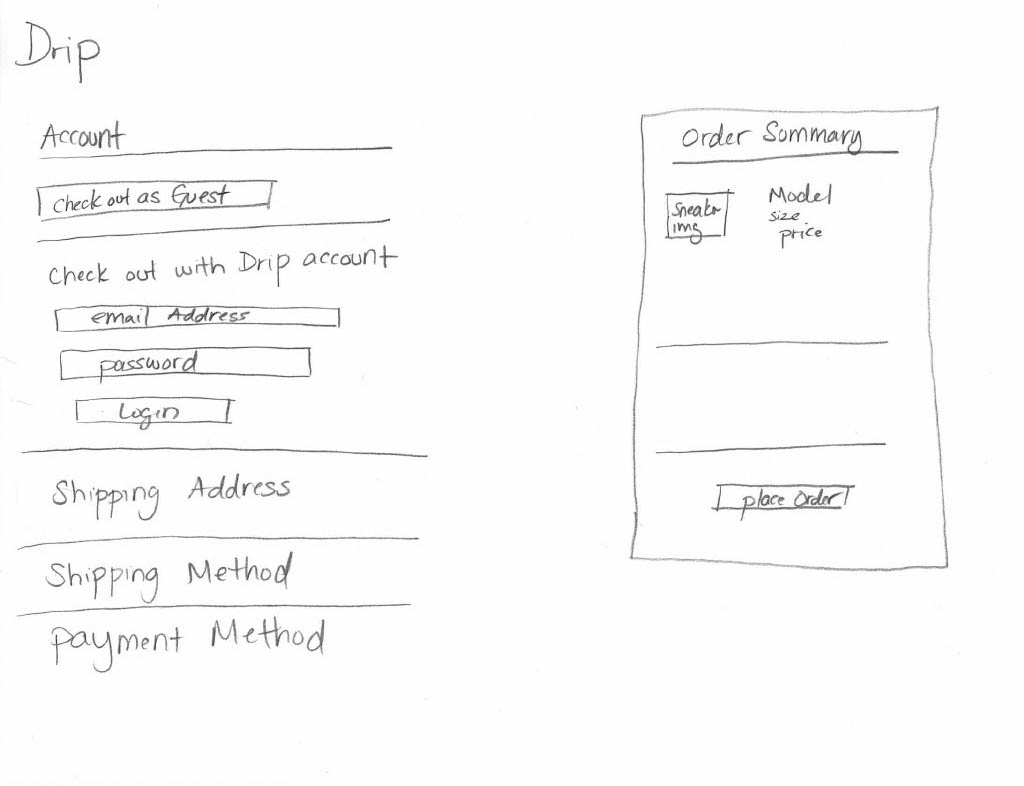 Drip
Account
Check out as Guest
Check out with Drip account
email Address
password
Login
Shipping Address
Shipping Method
Payment Method
Order Summary
Sneakr
img
Model
size
price
place Order